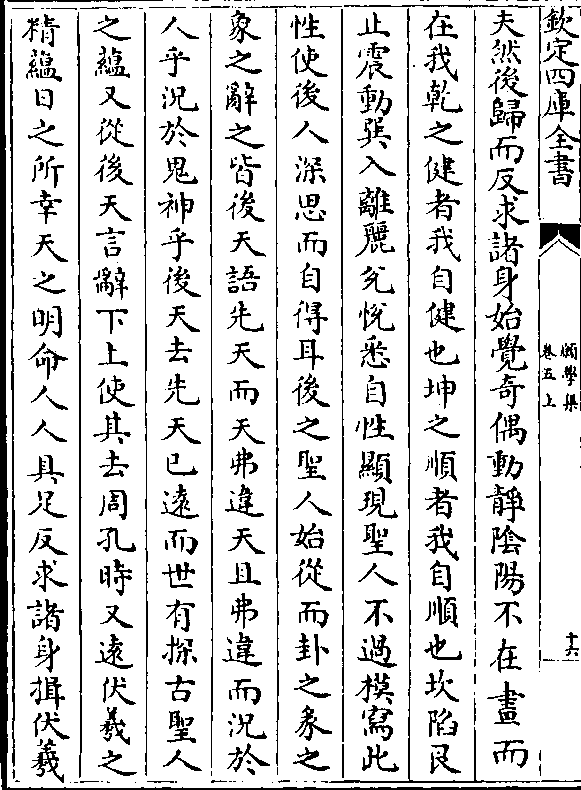 欽定四庫全書
嬾學集
卷五上
十六
夫然後歸而反求諸身始覺奇偶動靜陰陽不在畫而
在我乾之健者我自健也坤之順者我自順也坎陷艮
止震動巽入離麗兌悅悉自性顯現聖人不過模寫此
性使後人深思而自得耳後之聖人始從而卦之彖之
象之辭之皆後天語先天而天弗違天且弗違而況於
人乎況於鬼神乎後天去先天已遠而世有探古聖人
之蘊又從後天言辭下上使其去周孔時又遠伏羲之
精蘊日之所幸天之明命人人具足反求諸身揖伏羲